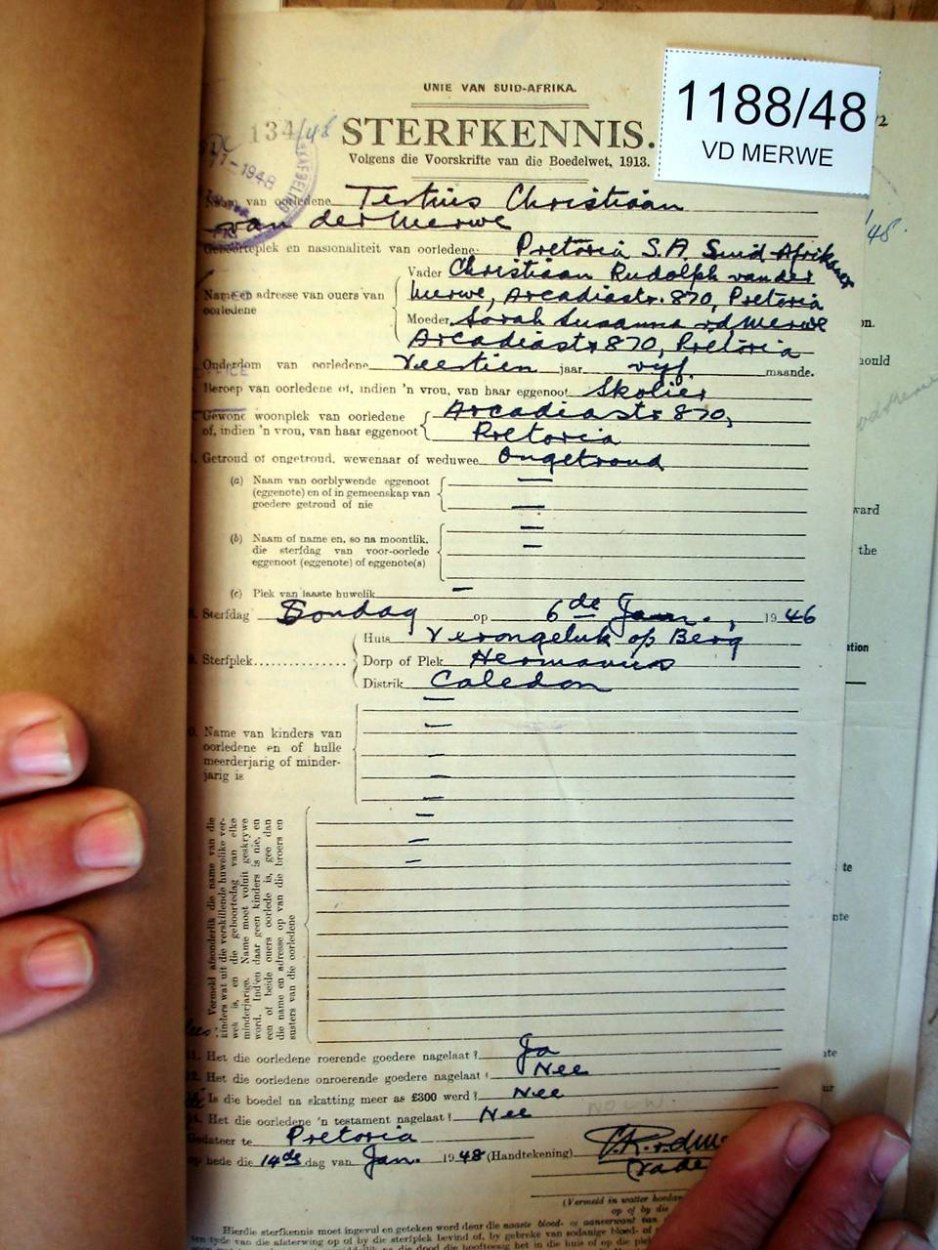 1188/48
VD MERWE
UNIE VAN SUID-AFRIKA.
134/48
STERFKENNIS.
Volgens die Voorskrifte van die Boedelwet, 1913.
-1948
van oorledene Tertius Christiaan
van der Merwe
Geboorteplek en nasionaliteit van oorledene: Pretoria S.A. Suid-Afrikaner
Name en adresse van ouers van oorledene
Vader Christiaan Rudolph van der
Merwe, Arcadiastr. 870, Pretoria
Moeder Sarah Susanna vd Merwe
Arcadiastr 870, Pretoria
Ouderdom van oorledene Veertien jaar vyf maande.
Beroep van oorledene of, indien 'n vrou, van haar eggenoot Skolier
Gewone woonplek van oorledene
of, indien 'n vrou, van haar eggenoot
Arcadiastr 870,
Pretoria
Getroud of ongetroud, wewenaar of weduwee Ongetroud
(a) Naam van oorblywende eggenoot
(eggenote) en of in gemeenskap van
goedere getroud of nie
(b) Naam of name en, so na moontlik,
die sterfdag van voor-oorlede
eggenoot (eggenote) of eggenote(s)
(c) Plek van laaste huwelik
Sterfdag Sondag op 6de Jan., 1946
Sterfplek
Huis Verongeluk op Berg
Dorp of Plek Hermanus
Distrik Caledon
Name van kinders van
oorledene en of hulle
meerderjarig of minder-
jarig is
Vermeld afsonderlik die name van die
kinders wat uit die verskillende huwelike ver-
wek is, en die geboortedag van elke
minderjarige. Name moet voluit geskrywe
word. Indien daar geen kinders is nie, en
een of beide ouers oorlede is, gee dan
die name en adresse op van die broers en
susters van die oorledene
11. Het die oorledene roerende goedere nagelaat? Ja
12. Het die oorledene onroerende goedere nagelaat? Nee
Is die boedel na skatting meer as £300 werd? Nee
14. Het die oorledene 'n testament nagelaat? Nee
Gedateer te Pretoria
op hede die 14de dag van Jan. 1948 (Handtekening) C.R. v.d. M
Vade
(Vermeld in watter
op of by die
Hierdie sterfkennis moet ingevul en geteken word deur die naaste bloed- of aanverwant van
ten tyde van die afsterwing op of by die sterfplek bevind of, by gebreke van sodanige bloed- of